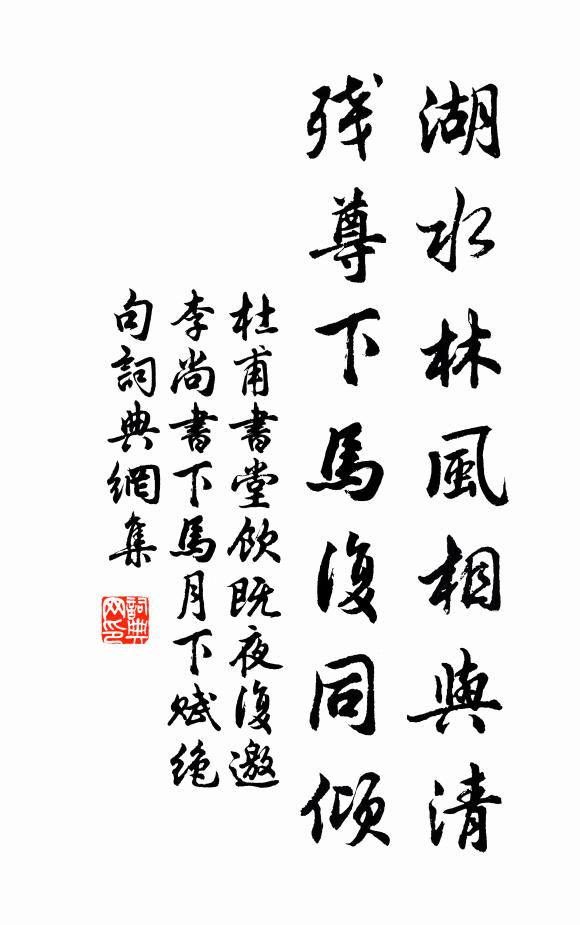 湖水林風相與清
残尊下馬復同傾
杜甫書堂飲既夜復邀
李尚書下馬月下賦絶
句詞典網集
詞典
网印